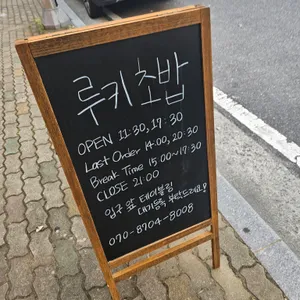 루키초밥
OPEN 11:30, 17:30
Last Order 14:00, 20:30
Break Time 15:00~17:30
CLOSE 21:00
입구 앞 테이블링
대기등록 부탁드려요
070-8704-8008